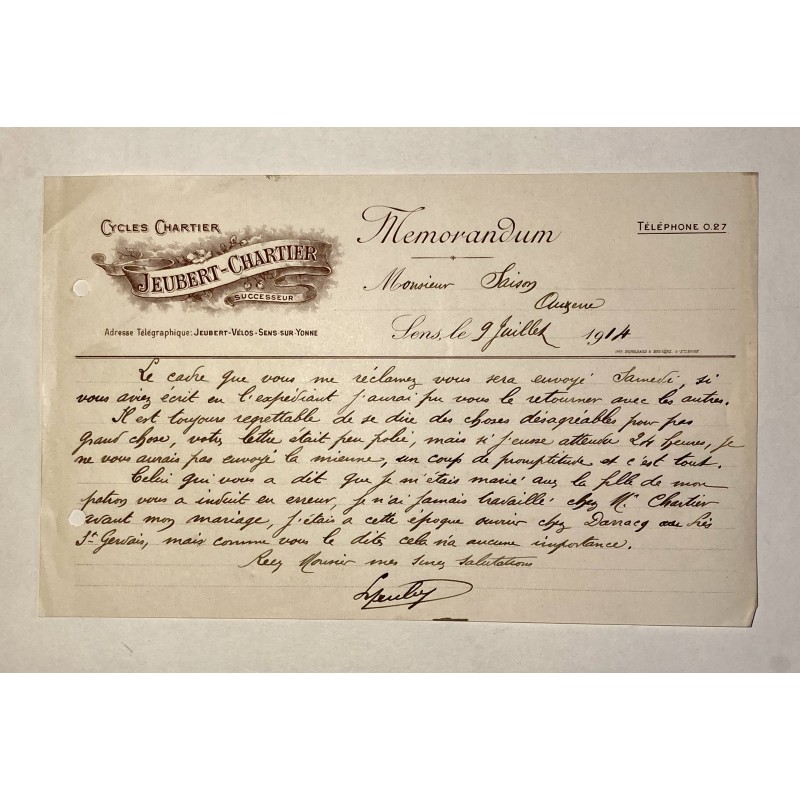 CYCLES CHARTIER
JEUBERT-CHARTIER
SUCCESSEUR
Adresse Télégraphique: JEUBERT-VÉLOS-SENS-SUR-YONNE
Memorandum
TÉLÉPHONE 0.27
Monsieur Saison
Auxerre
Sens, le 9 Juillet 1914
Le cadre que vous me réclamez vous sera envoyé Samedi, si
vous aviez écrit en l'expédiant j'aurai pu vous le retourner avec les autres.
Il est toujours regrettable de se dire des choses désagréables pour pas
grand chose, votre lettre était peu polie, mais si j'eusse attendu 24 heures, je
ne vous aurais pas envoyé la mienne, un coup de promptitude et c'est tout.
Celui qui vous a dit que je m'étais marié avec la fille de mon
patron vous a induit en erreur, je n'ai jamais travaillé chez Mr Chartier
avant mon mariage, j'étais a cette époque ouvrier chez Darracq au Prés
St Gervais, mais comme vous le dites cela n'a aucune importance.
Recez Monsieur mes sincs salutations